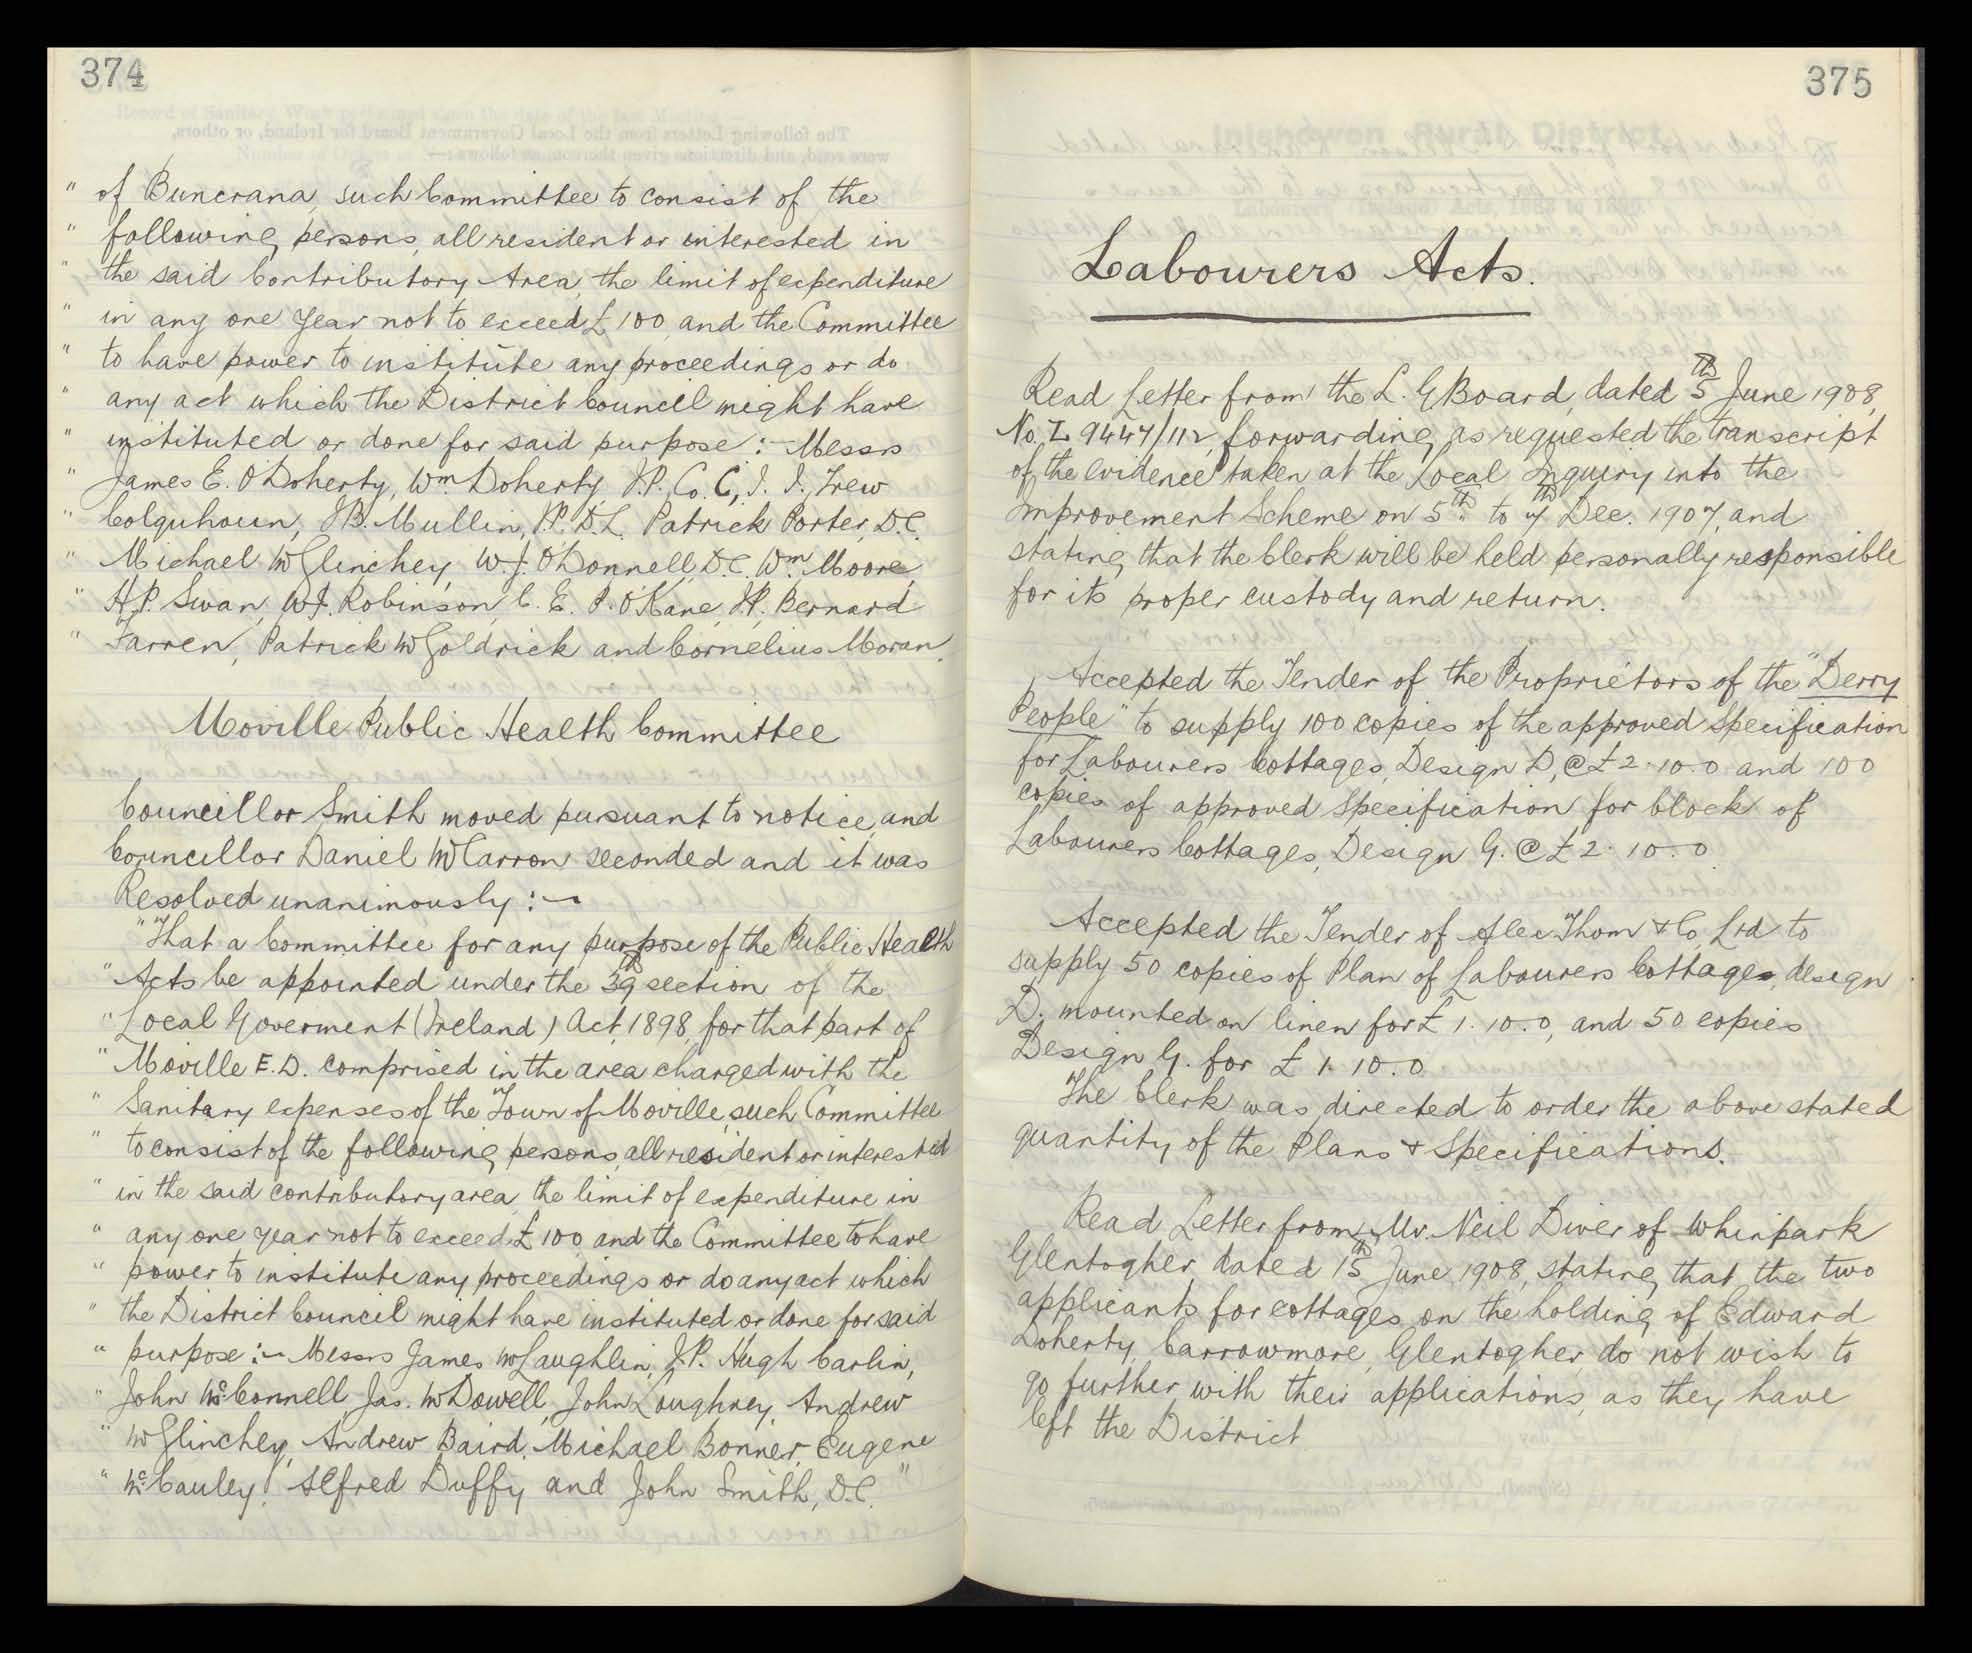 374
" of Buncrana, such Committee to consist of the
" following persons, all resident or interested in
" the said Contributory Area, the limit of expenditure
" in any one year not to exceed £100, and the Committee
" to have power to institute any proceedings or do
" any act which the District Council might have
" instituted or done for said purpose :- Messrs
" James E. O'Doherty, Wm Doherty, J.P. Co. C, I. J. Trew
" Colquhoun, J.B. Mullin, J.P. D.L. Patrick Porter, D.C.
" Michael McGlinchey, W.J. O'Donnell, D.C. Wm Moore,
" H.P. Swan, W.J. Robinson, C. E. P. O'Kane, J.P. Bernard
" Farren, Patrick McGoldrick and Cornelius Moran.
Moville Public Health Committee
Councillor Smith moved pursuant to notice, and
Councillor Daniel McCarron seconded and it was
Resolved unanimously :-
" That a Committee for any purpose of the Public Health
" Acts be appointed under the 39th section of the
" Local Goverment (Ireland) Act, 1898, for that part of
" Moville E.D. comprised in the area charged with the
" Sanitary expenses of the Town of Moville, such Committee
" to consist of the following persons, all resident or interested
" in the said contributory area, the limit of expenditure in
" any one year not to exceed £100, and the Committee to have
" power to institute any proceedings or do any act which
" the District Council might have instituted or done for said
" purpose :- Messrs James McLaughlin, J.P. Hugh Carlin,
" John McConnell, Jas. McDowell, John Loughrey, Andrew
" McGlinchey, Andrew Baird, Michael Bonner, Eugene
" McCauley, Alfred Duffy and John Smith, D.C. "
375
Labourers Acts.
Read Letter from the L. G Board, dated 5th June 1908,
No. L 9447/112, forwarding as requested the transcript
of the evidence taken at the Local Inquiry into the
Improvement Scheme on 5th to 7th Dec. 1907, and
stating that the Clerk will be held personally responsible
for its proper custody and return.
Accepted the Tender of the Proprietors of the "Derry
People" to supply 100 copies of the approved specification
for Labourers Cottages, Design D, @ £2.10.0 and 100
copies of approved specification for block of
Labourers Cottages, Design G. @ £2.10.0
Accepted the Tender of Alec Thom & Co. Ltd to
supply 50 copies of Plan of Labourers Cottages, design
D. mounted on linen for £1.10.0, and 50 copies
Design G. for £1.10.0
The Clerk was directed to order the above stated
quantity of the Plans & Specifications.
Read Letter from Mr. Neil Diver of Whinpark
Glentogher, dated 15th June 1908, stating that the two
applicants for cottages on the holding of Edward
Doherty, Carrowmore, Glentogher, do not wish to
go further with their applications, as they have
left the District